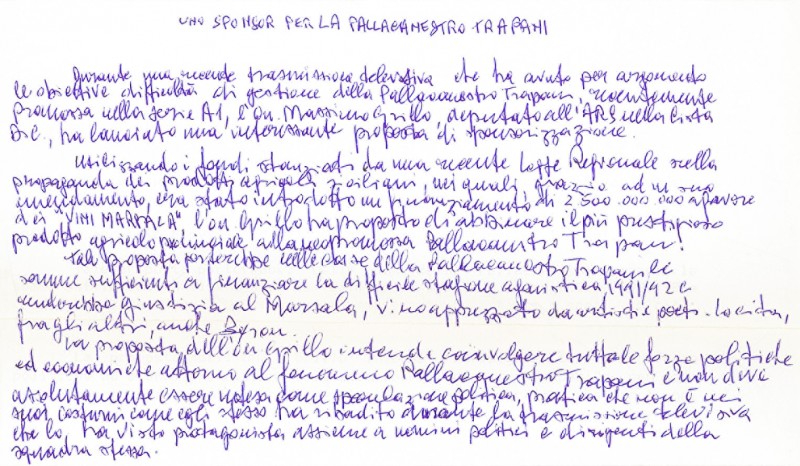 UNO SPONSOR PER LA PALLACANESTRO TRAPANI
Durante una recente trasmissione televisiva che ha avuto per argomento
le obiettive difficoltà di gestione della Pallacanestro Trapani, recentemente
promossa nella serie A1, l'on. Massimo Grillo, deputato all'ARS nella lista
D.C., ha lanciato una interessante proposta di sponsorizzazione.
Utilizzando i fondi stanziati da una recente Legge Regionale sulla
propaganda dei prodotti agricoli siciliani, nei quali, grazie ad un suo
emendamento, era stato introdotto un finanziamento di 2.500.000.000 a favore
dei "VINI MARSALA" l'on Grillo ha proposto di abbinare il più prestigioso
prodotto agricolo provinciale alla neopromossa Pallacanestro Trapani.
Tale proposta porterebbe nelle casse della Pallacanestro Trapani le
somme sufficienti a finanziare la difficile stagione agonistica 1991/92 e
renderebbe giustizia al Marsala, vino apprezzato da artisti e poeti. Lo cita,
fra gli altri, anche Byron.
La proposta dell'on Grillo intende coinvolgere tutte le forze politiche
ed economiche attorno al fenomeno Pallacanestro Trapani e non deve
assolutamente essere intesa come speculazione politica, pratica che non è nei
suoi costumi come egli stesso ha ribadito durante la trasmissione televisiva
che lo ha visto protagonista assieme a uomini politici e dirigenti della
squadra stessa.